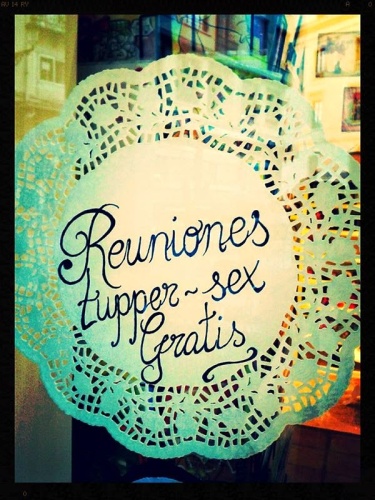 Reuniones
tupper-sex
Gratis